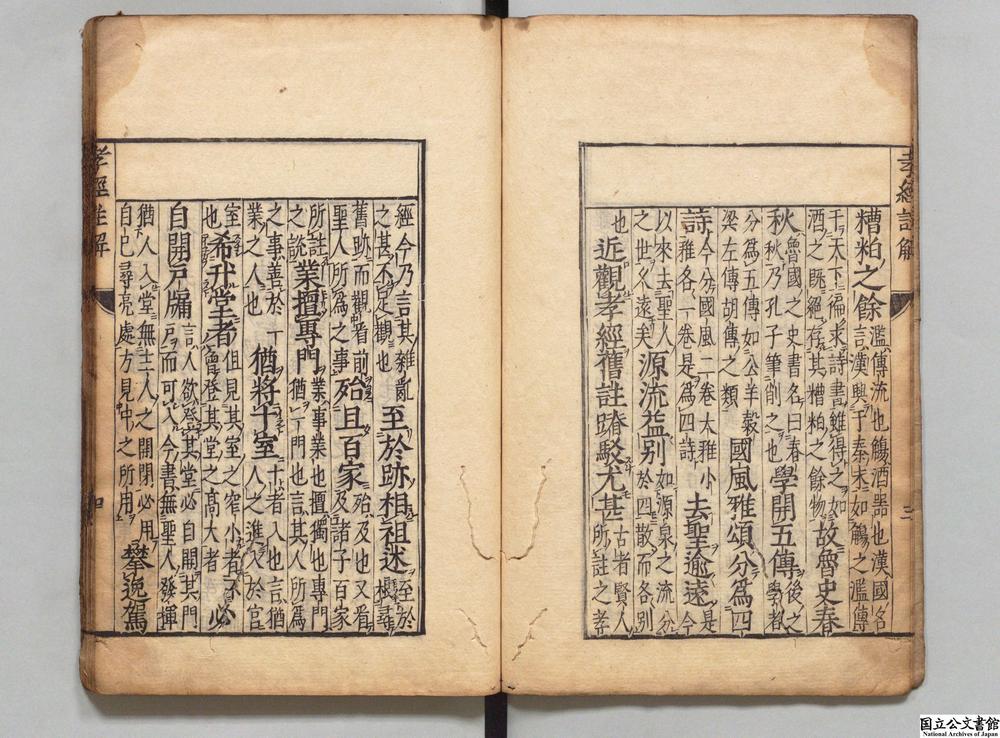 孝經註解
糟粕之餘
濫傳流也觴酒器也漢國名
言漢興于秦末如觴之濫傳
于天下徧求詩書雖得之如
酒之既絕存其糟粕之餘物
故魯史春
秋
魯國之史書名曰春
秋乃孔子筆削之也
學開五傳
後之
學者
分為五傳如公羊穀
梁左傳胡傳之類
國風雅頌分為四
詩
今分國風二卷大雅小
雅各一卷是為四詩
去聖逾遠
是
今
以來去聖人
之世久遠矣
源流益别
如源泉之流分
於四散而各别
也
近觀孝經舊註踳駁尤甚
古者賢人
所註之孝
經今乃言其雜亂
之甚不足觀也
至於跡相祖述
至於
概尋
舊跡而觀看前
聖人所為之事
殆且百家
殆及也又看
及諸子百家
所註
之說
業擅專門
業事業也擅獨也專門
猶一門也言其人所為
之事善於一
業之人也
猶將十室
十者入也言猶
人之進入於官
室
也
希升堂者
但見其室之窄小者不
曾登其堂之高大者
必
自開戶牖
言人欲登其堂必自開其門
戶而可入今書無聖人發揮
猶人入堂無主人之開閉必用
自己尋亮處方見中之所用
攀逸駕
孝經註解
国立公文書館
National Archives of Japan